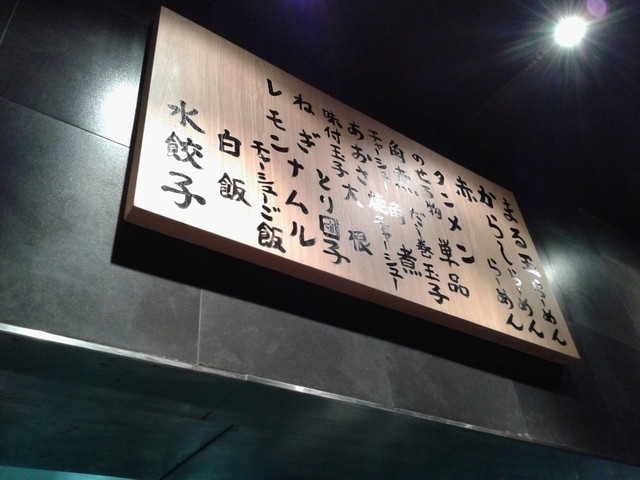 まる玉らーめん
からじゃらーめん
赤タンメン
のせる物 単品
だし巻玉子
角煮
チャーシュー
味付玉子
あおさ 大根
ねぎ とり團子
レモン ナムル
チャーシューご飯
白飯
水餃子